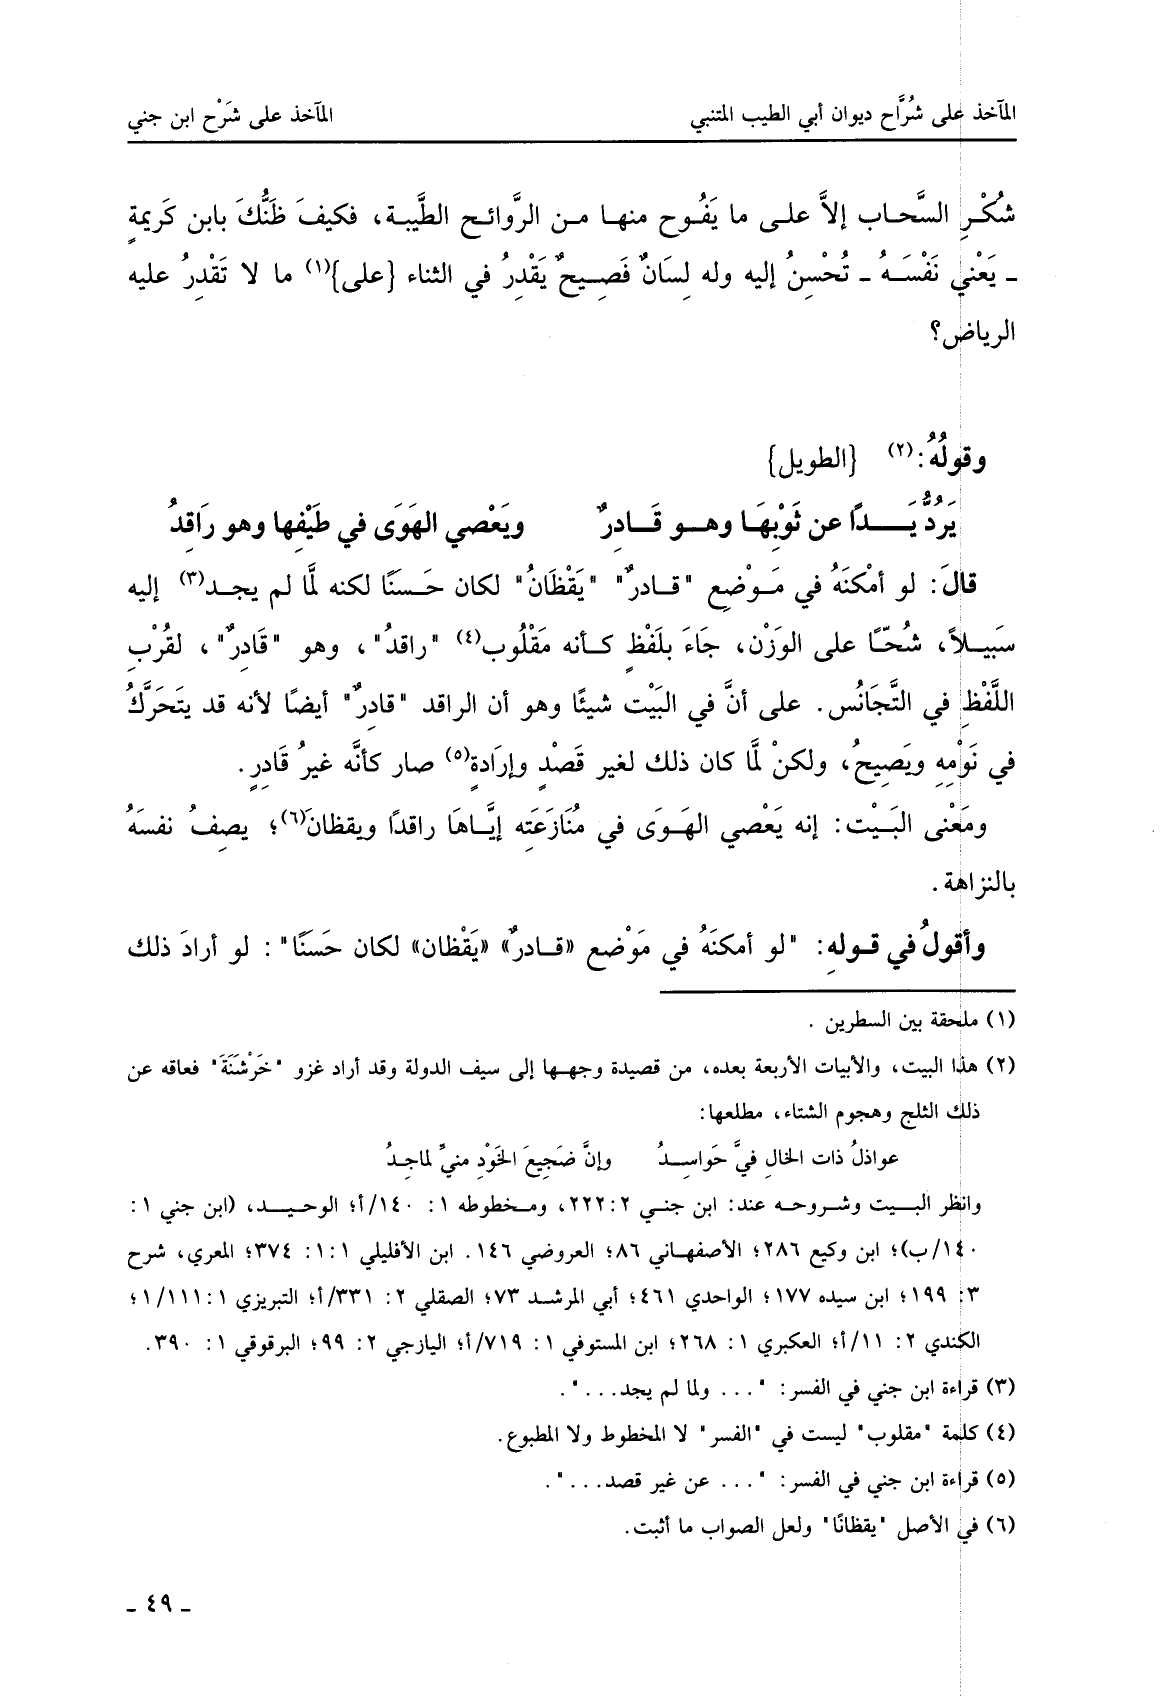 المآخذ على شُرَّاح ديوان أبي الطيب المتنبي
المآخذ على شَرْح ابن جني
شُكْرِ السَّحاب إلاَّ على ما يَفُوح منها من الرَّوائح الطَّيبة، فكيفَ ظَنُّكَ بابن كَريمةٍ
ـ يَعْني نَفْسَهُ ـ تُحْسِنُ إليه وله لِسَانٌ فَصِيحٌ يَقْدِرُ في الثناء {على}(١) ما لا تَقْدِرُ عليه
الرياض؟
وقولُهُ:(٢) {الطويل}
يَرُدُّ يَدًا عن ثَوْبِهَا وهو قَادِرٌ ويَعْصي الهَوَى في طَيْفِها وهو رَاقِدُ
قالَ: لو أمْكنَهُ في مَوْضِعِ "قادرٌ" "يَقْظَانُ" لكان حَسَنًا لكنه لَمَّا لم يجد(٣) إليه
سَبيلاً، شُحّاً على الوَزْن، جَاءَ بلَفْظٍ كأنه مَقْلُوب(٤) "راقدُ"، وهو "قَادِرٌ"، لقُرْبِ
اللَّفْظِ في التَّجَانُس. على أنَّ في البَيْت شيئًا وهو أن الراقد "قادِرٌ" أيضًا لأنه قد يتَحَرَّكُ
في نَوْمِهِ ويَصِيحُ، ولكنْ لمَّا كان ذلك لغير قَصْدٍ وإرَادةٍ(٥) صار كأنَّه غيرُ قَادِرٍ.
ومَعْنى البَيْت: إنه يَعْصي الهَوَى في مُنَازَعَتِه إيَّاهَا راقدًا ويقظانَ(٦)؛ يصِفُ نفسَهُ
بالنزاهة.
وأقولُ في قولِهِ: "لو أمكنَهُ في مَوْضع «قادرٌ» «يَقْظان» لكان حَسَنًا": لو أرادَ ذلك
(١) ملحقة بين السطرين .
(٢) هذا البيت، والأبيات الأربعة بعده، من قصيدة وجهها إلى سيف الدولة وقد أراد غزو "خَرْشَنَةَ" فعاقه عن
ذلك الثلج وهجوم الشتاء، مطلعها:
عواذلُ ذات الخالِ فيَّ حَواسِدُ وإنَّ ضَجِيعَ الخَوْدِ منيِّ لماجِدُ
وانظر البيت وشروحه عند: ابن جني ٢:٢٢٢، ومخطوطه ١: ١٤٠/أ؛ الوحيد، (ابن جني ١:
١٤٠/ب)؛ ابن وكيع ٢٨٦؛ الأصفهاني ٨٦؛ العروضي ١٤٦. ابن الأفليلي ١:١: ٣٧٤؛ المعري، شرح
٣: ١٩٩؛ ابن سيده ١٧٧؛ الواحدي ٤٦١؛ أبي المرشد ٧٣؛ الصقلي ٢: ٣٣١/أ؛ التبريزي ١:١١١/١؛
الكندي ٢: ١١/أ؛ العكبري ١: ٢٦٨؛ ابن المستوفي ١: ٧١٩/أ؛ اليازجي ٢: ٩٩؛ البرقوقي ١: ٣٩٠.
(٣) قراءة ابن جني في الفسر: "... ولما لم يجد...".
(٤) كلمة "مقلوب" ليست في "الفسر" لا المخطوط ولا المطبوع.
(٥) قراءة ابن جني في الفسر: "... عن غير قصد...".
(٦) في الأصل "يقظانًا" ولعل الصواب ما أثبت.
ـ ٤٩ ـ